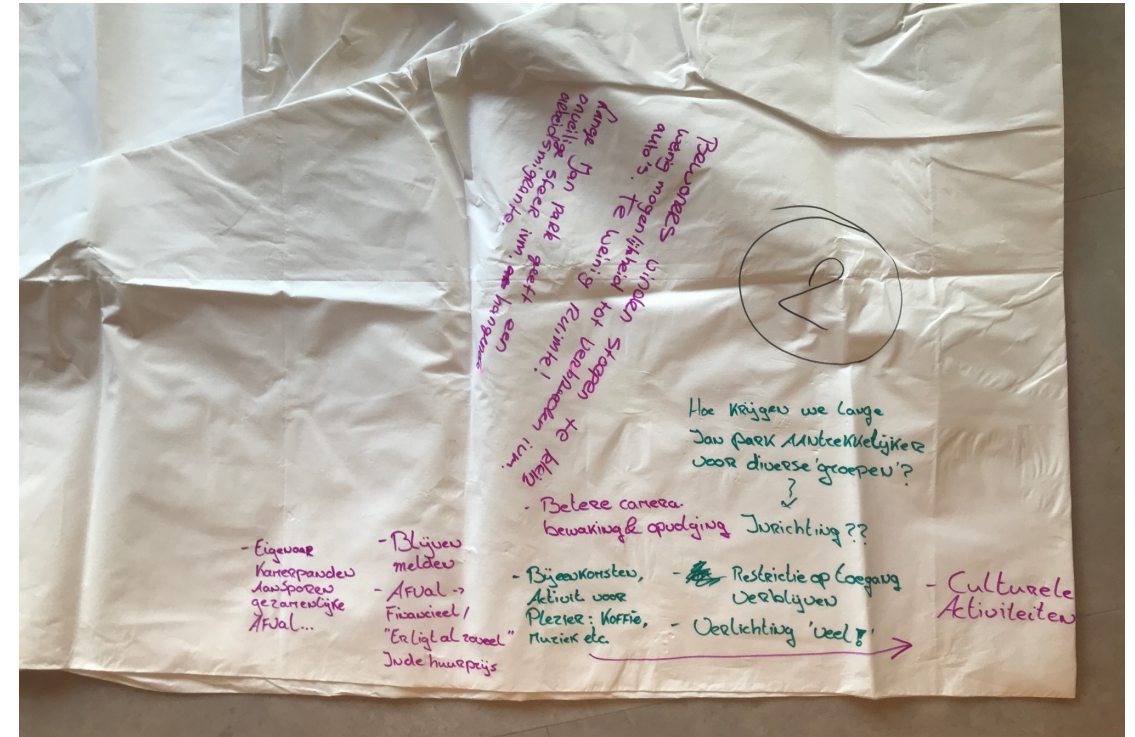 2
Bewoners vinden stoepen te klein
weinig mogenlijkheid tot verbreeden ivm.
auto's. Te weinig Ruimte!
Lange Jan park geeft een
onveilige sfeer ivm.
arbeidsmigrante.
Hoe krijgen we Lange
Jan park aantrekkelijker
voor diverse 'groepen'?
Inrichting??
- Betere camera.
bewaking & opvolging
- Eigenaar
Kamerpanden
Aansporen
gezamenlijke
Afval...
- Blijven
melden
- Afval ->
Financieel /
"Er ligt al zoveel"
In de huurprijs
- Bijeenkomsten,
Activit. voor
Plezier: Koffie,
Muziek etc.
- Restrictie op toegang
verblijven
- Verlichting 'veel!'
- Culturele
Activiteiten